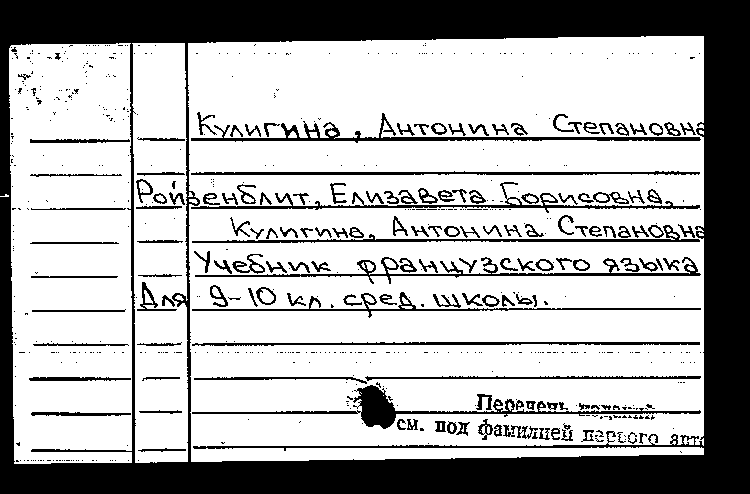 Кулигина, Антонина Степановна
Ройзенблит, Елизавета Борисовна,
Кулигина, Антонина Степановна
Учебник французского языка
Для 9-10 кл. сред. школы.
Перечень изданий
см. под фамилией первого авто